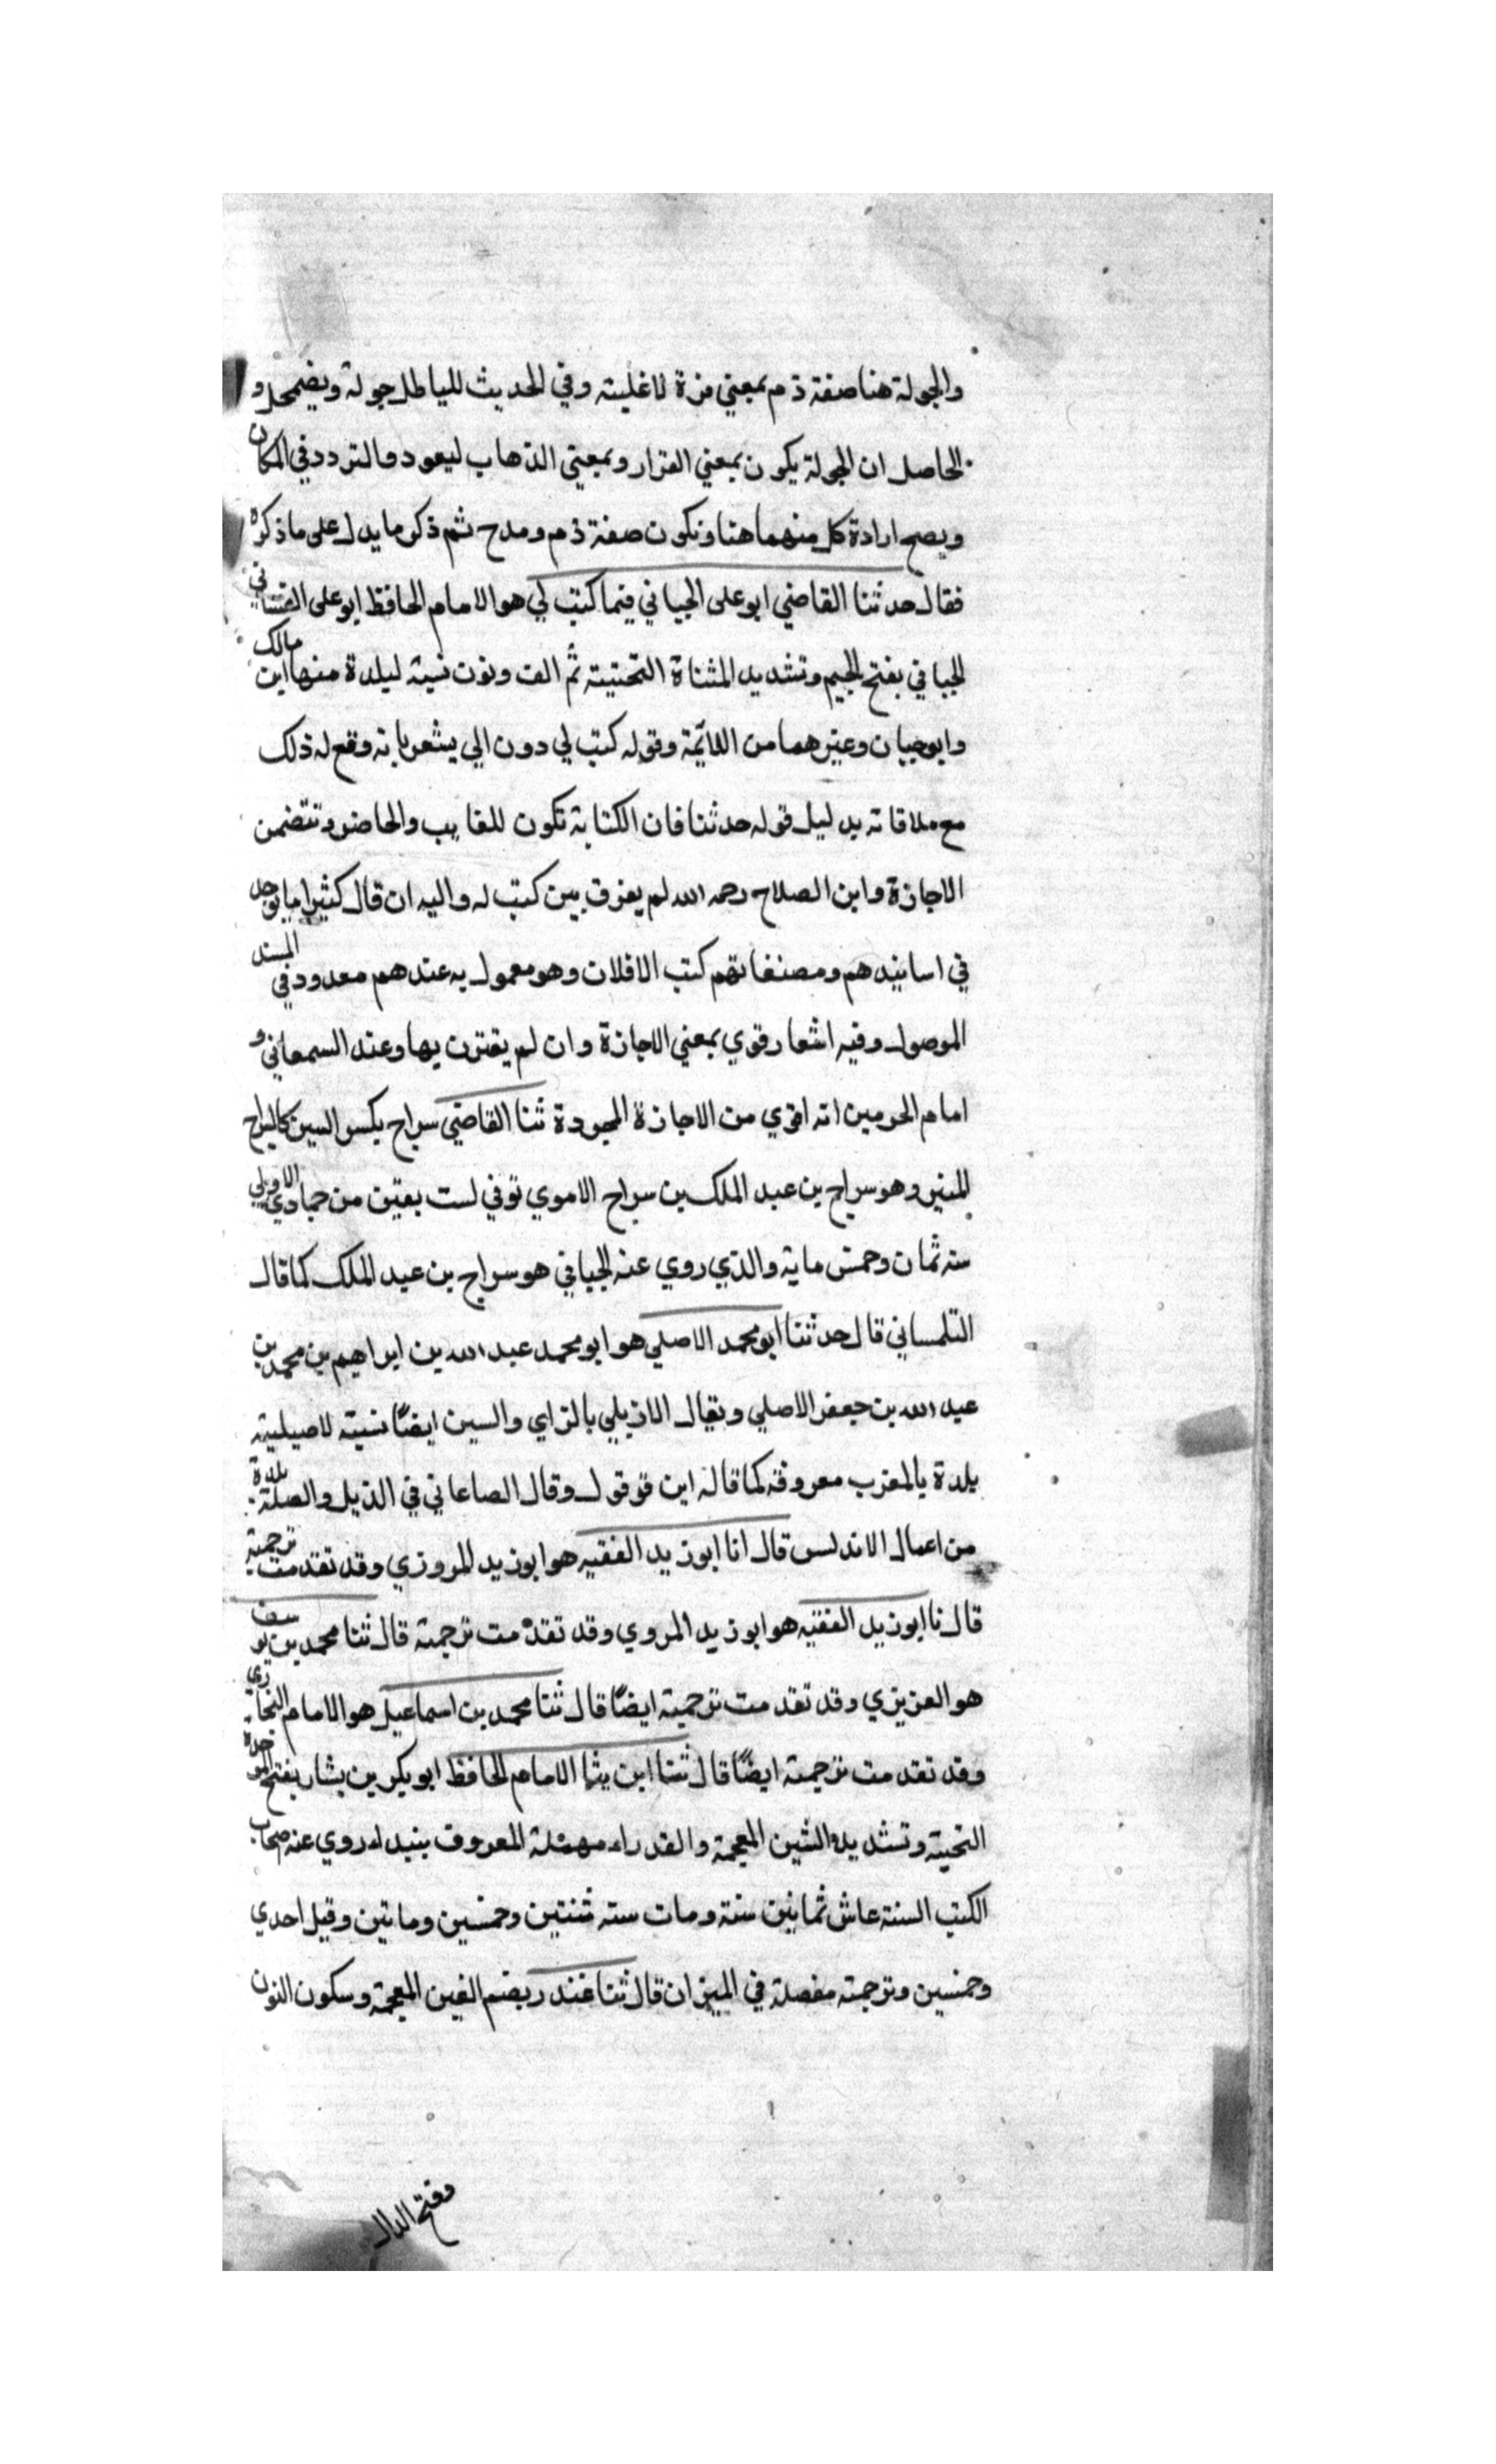 والجولة هنا صفة ذم بمعني مرة لا غلبته وفي الحديث للباطل جولة ويضمحل و
الحاصل ان الجولة يكون بمعني الفرار وبمعني الذهاب ليعود والتردد في المكان
ويصح ارادة كل منهما هنا وتكون صفة ذم ومدح ثم ذكر ما يدل علي ما ذكره
فقال حدثنا القاضي ابو علي الجياني فيما كتب لي هو الامام الحافظ ابو علي الغساني
الجياني بفتح الجيم وتشديد المثناة التحتية ثم الف ونون نسبة لبلدة منها ابن مالك
وابو حيان وغيرهما من اللائمة وقوله كتب لي دون الي يشعر بانه وقع له ذلك
مع ملاقاته بدليل قوله حدثنا فان الكتابة تكون للغايب والحاضر وتتضمن
الاجازة وابن الصلاح رحمه الله لم يفرق بين كتب له واليه ان قال كثيرا ما يوجد
في اسانيدهم ومصنفاتهم كتب الافلان وهو معمول به عندهم معدود في المسند
الموصول وفيه اشعار قوي بمعني الاجازة وان لم يقترن بها وعند السمعاني و
امام الحرمين انه اقوي من الاجازة المجردة ثنا القاضي سراج بكسر السين كالسراج
المنير وهو سراج بن عبد الملك بن سراج الاموي توفي لست بقين من جمادي الاولي
سنه ثمان وخمس ماية والذي روي عنه الجياني هو سراج بن عبد الملك كما قال
التلمساني قال حدثنا ابو محمد الاصلي هو ابو محمد عبد الله بن ابراهيم بن محمد بن
عبد الله بن جعفر الاصلي ويقال الازيلي بالزاي والسين ايضًا نسبة لاصيلية
بلدة بالمغرب معروفة كما قاله ابن قوقول وقال الصاعاني في الذيل والصلة بلدة
من اعمال الاندلس قال انا ابو زيد الفقيه هو ابو زيد المروزي وقد تقدمت ترجمته
قال نا ابو زيد الفقيه هو ابو زيد المروي وقد تقدمت ترجمته قال ثنا محمد بن يوسف
هو العزيزي وقد تقدمت ترجمته ايضًا قال ثنا محمد بن اسماعيل هو الامام البخاري
وقد تقدمت ترجمته ايضًا قال ثنا ابن بشا الامام الحافظ ابو بكر بن بشار بفتح الموحدة
التحية وتشديد الشين المعجمة والفد راء مهملة المعروف ببندار روي عنه صحاب
الكتب الستة عاش ثمانين سنة ومات سنه ثنتين وخمسين وماتين وقيل احدي
وخمسين وترجمته مفصلة في الميزان قال ثنا غندر بضم الغين المعجمة وسكون النون
وفتح الدال